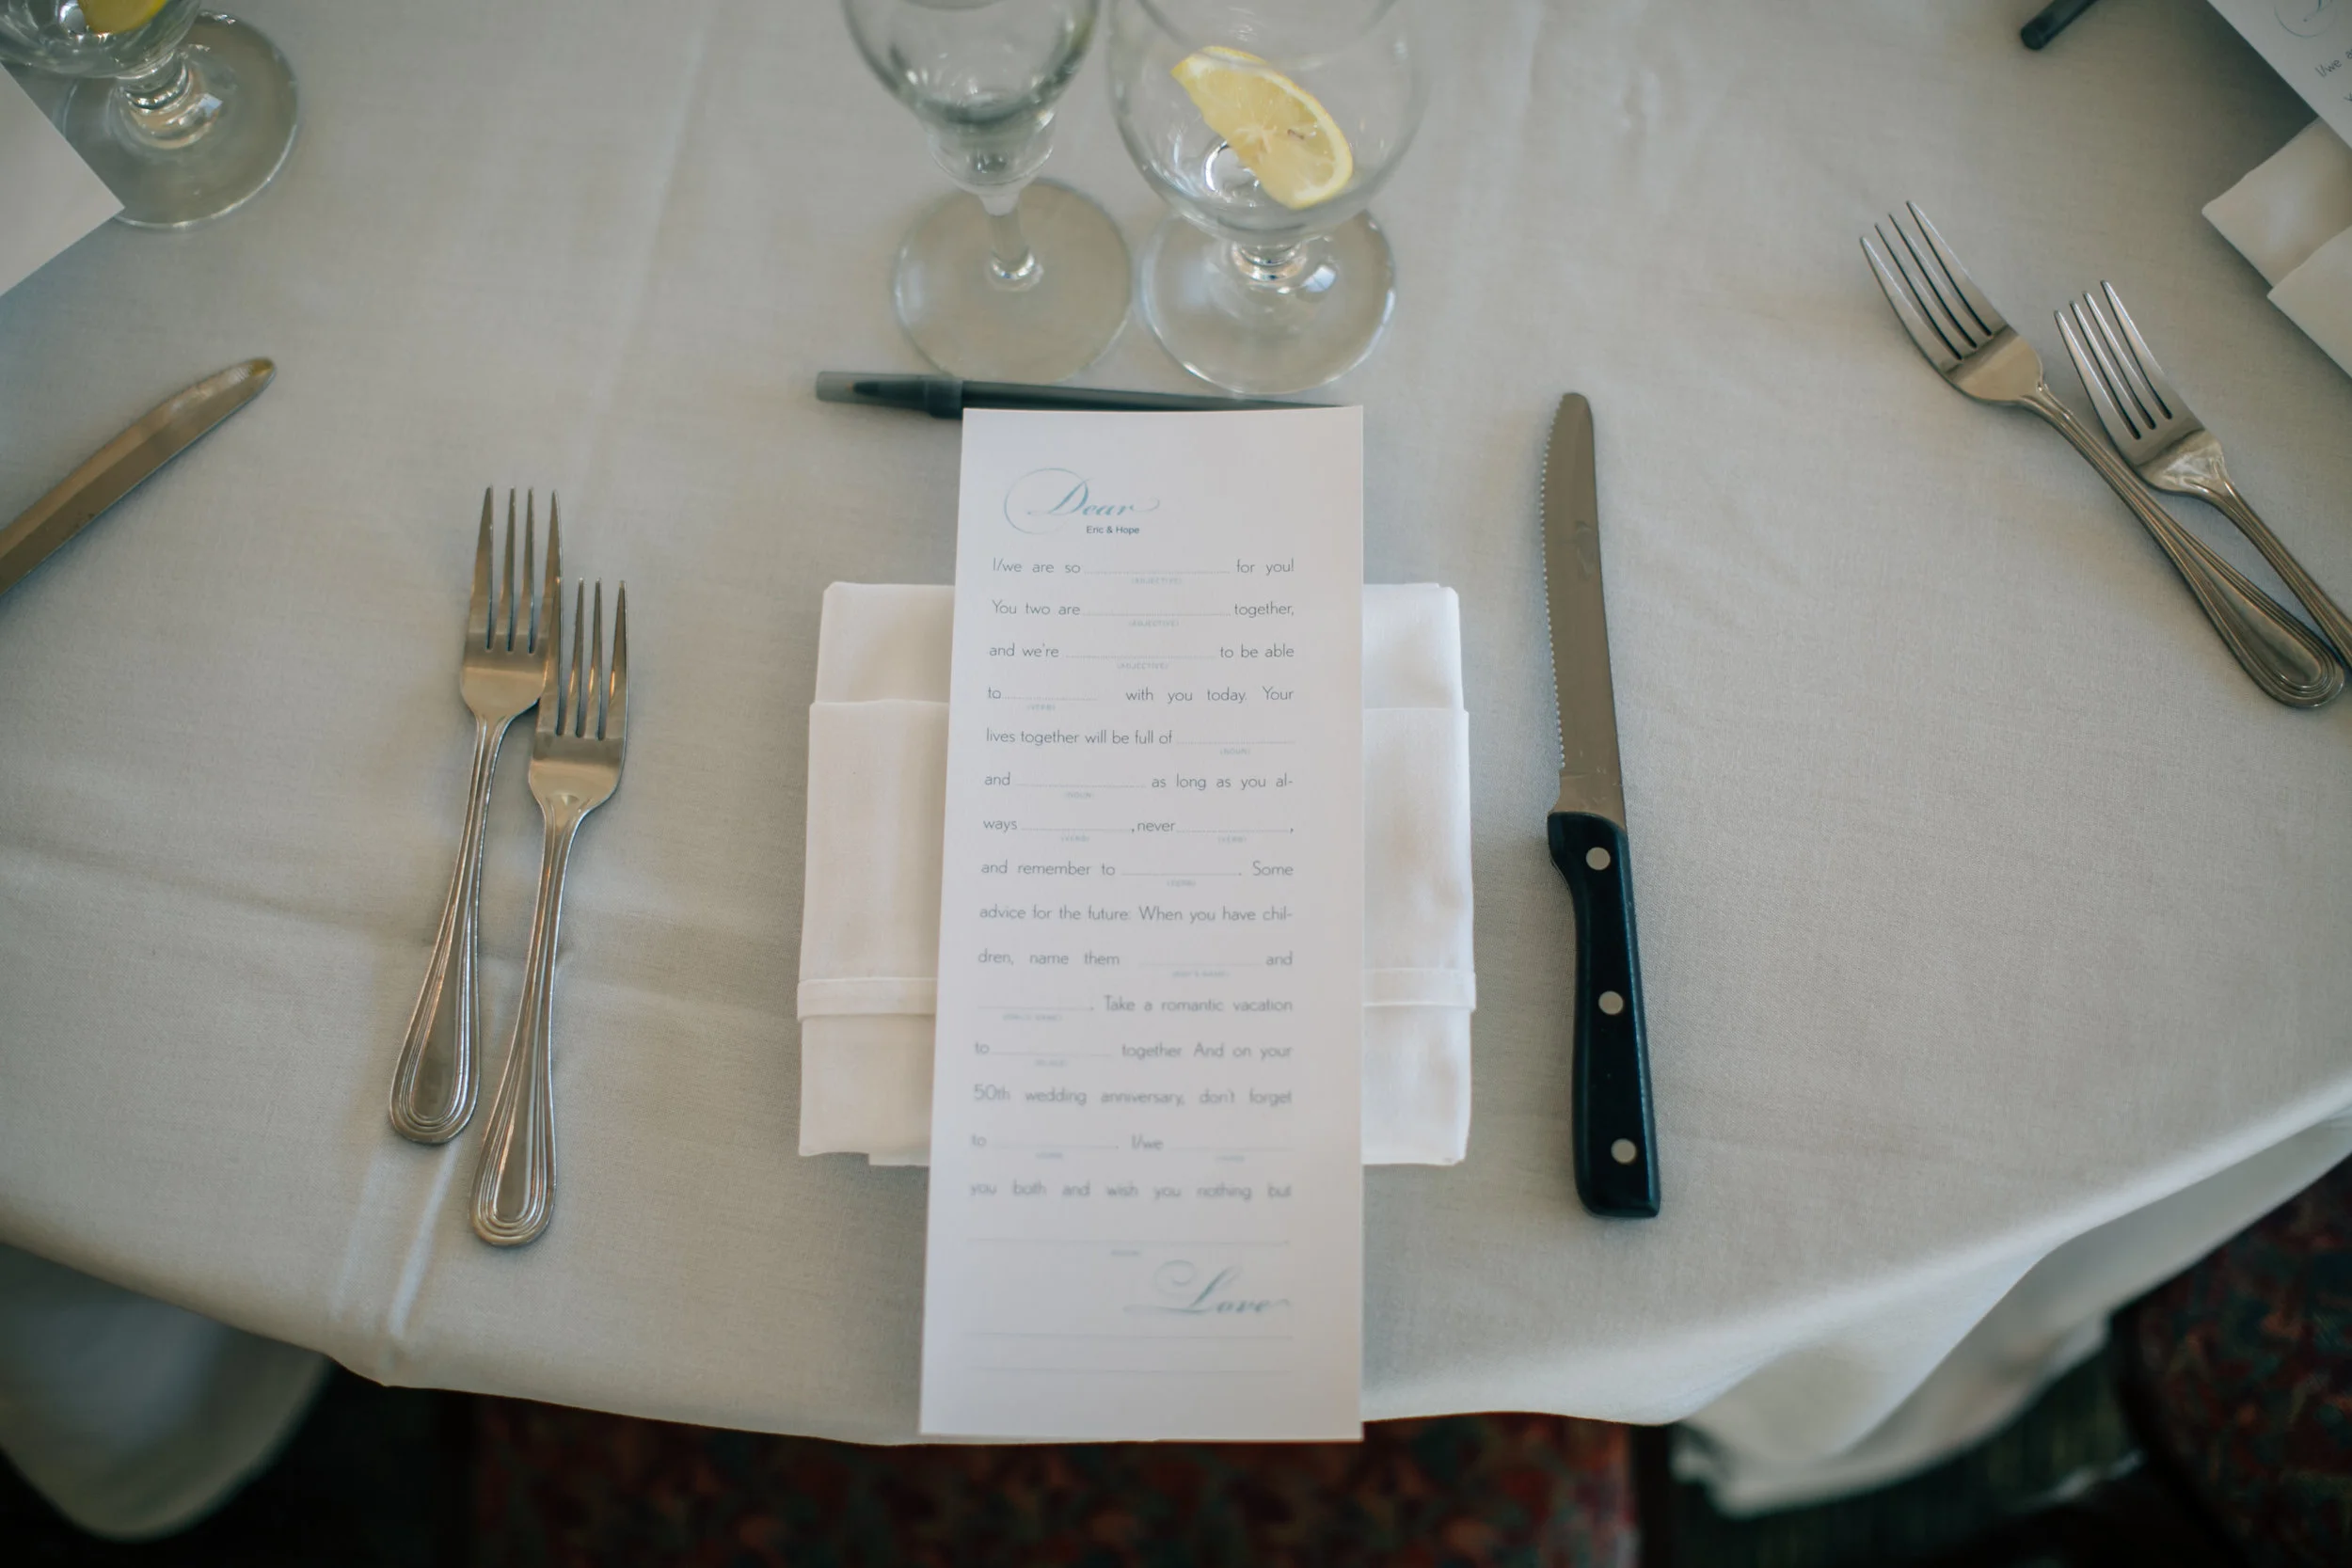 Dear
Eric & Hope
I/we are so for you!
(ADJECTIVE)
You two are together,
(ADJECTIVE)
and we're to be able
(ADJECTIVE)
to with you today. Your
(VERB)
lives together will be full of
(NOUN)
and as long as you al-
(NOUN)
ways , never ,
(VERB) (VERB)
and remember to . Some
(VERB)
advice for the future: When you have chil-
dren, name them and
. Take a romantic vacation
to together. And on your
50th wedding anniversary, don't forget
to . I/we
you both and wish you nothing but
Love
I/we